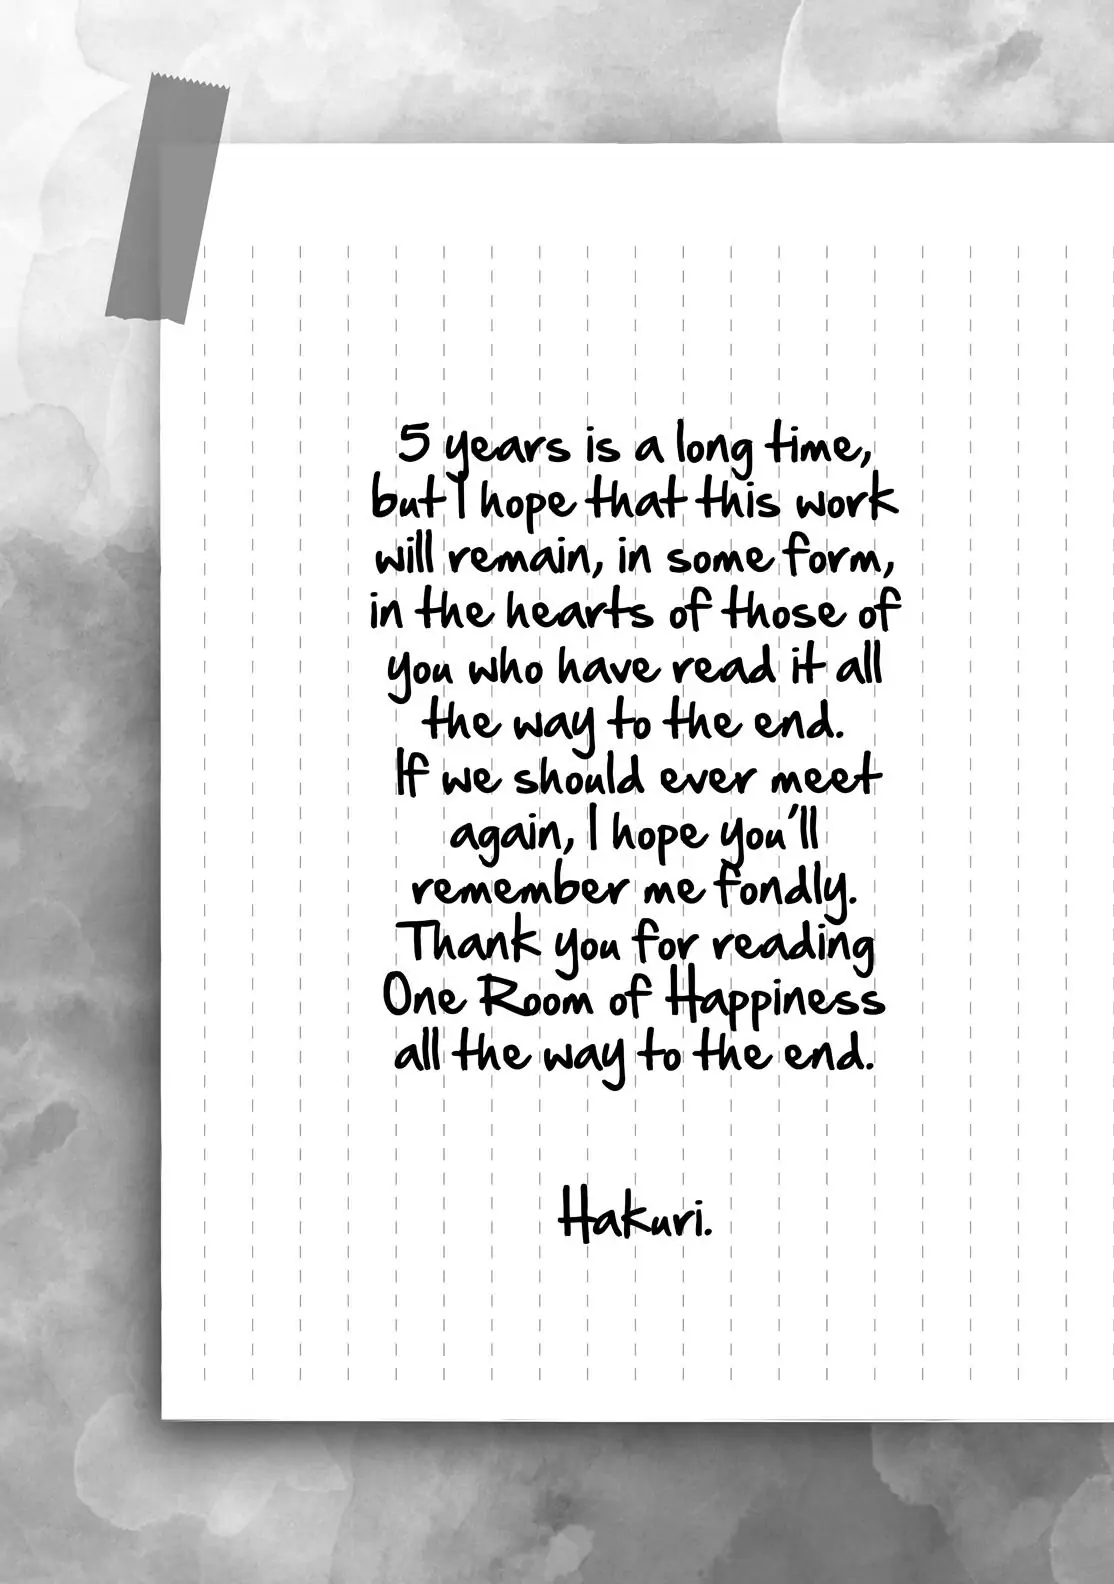 5 years is a long time,
but I hope that this work
will remain, in some form,
in the hearts of those of
you who have read it all
the way to the end.
If we should ever meet
again, I hope you'll
remember me fondly.
Thank you for reading
One Room of Happiness
all the way to the end.
Hakuri.